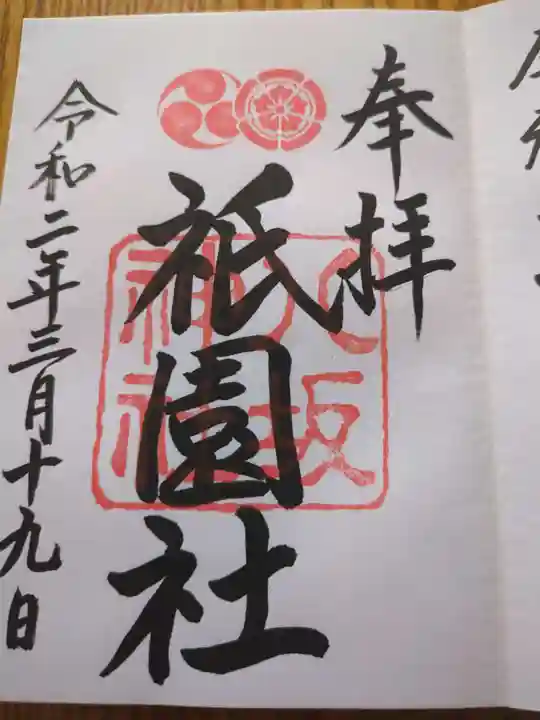 奉拝
祇園社
八坂
神社
令和二年三月十九日